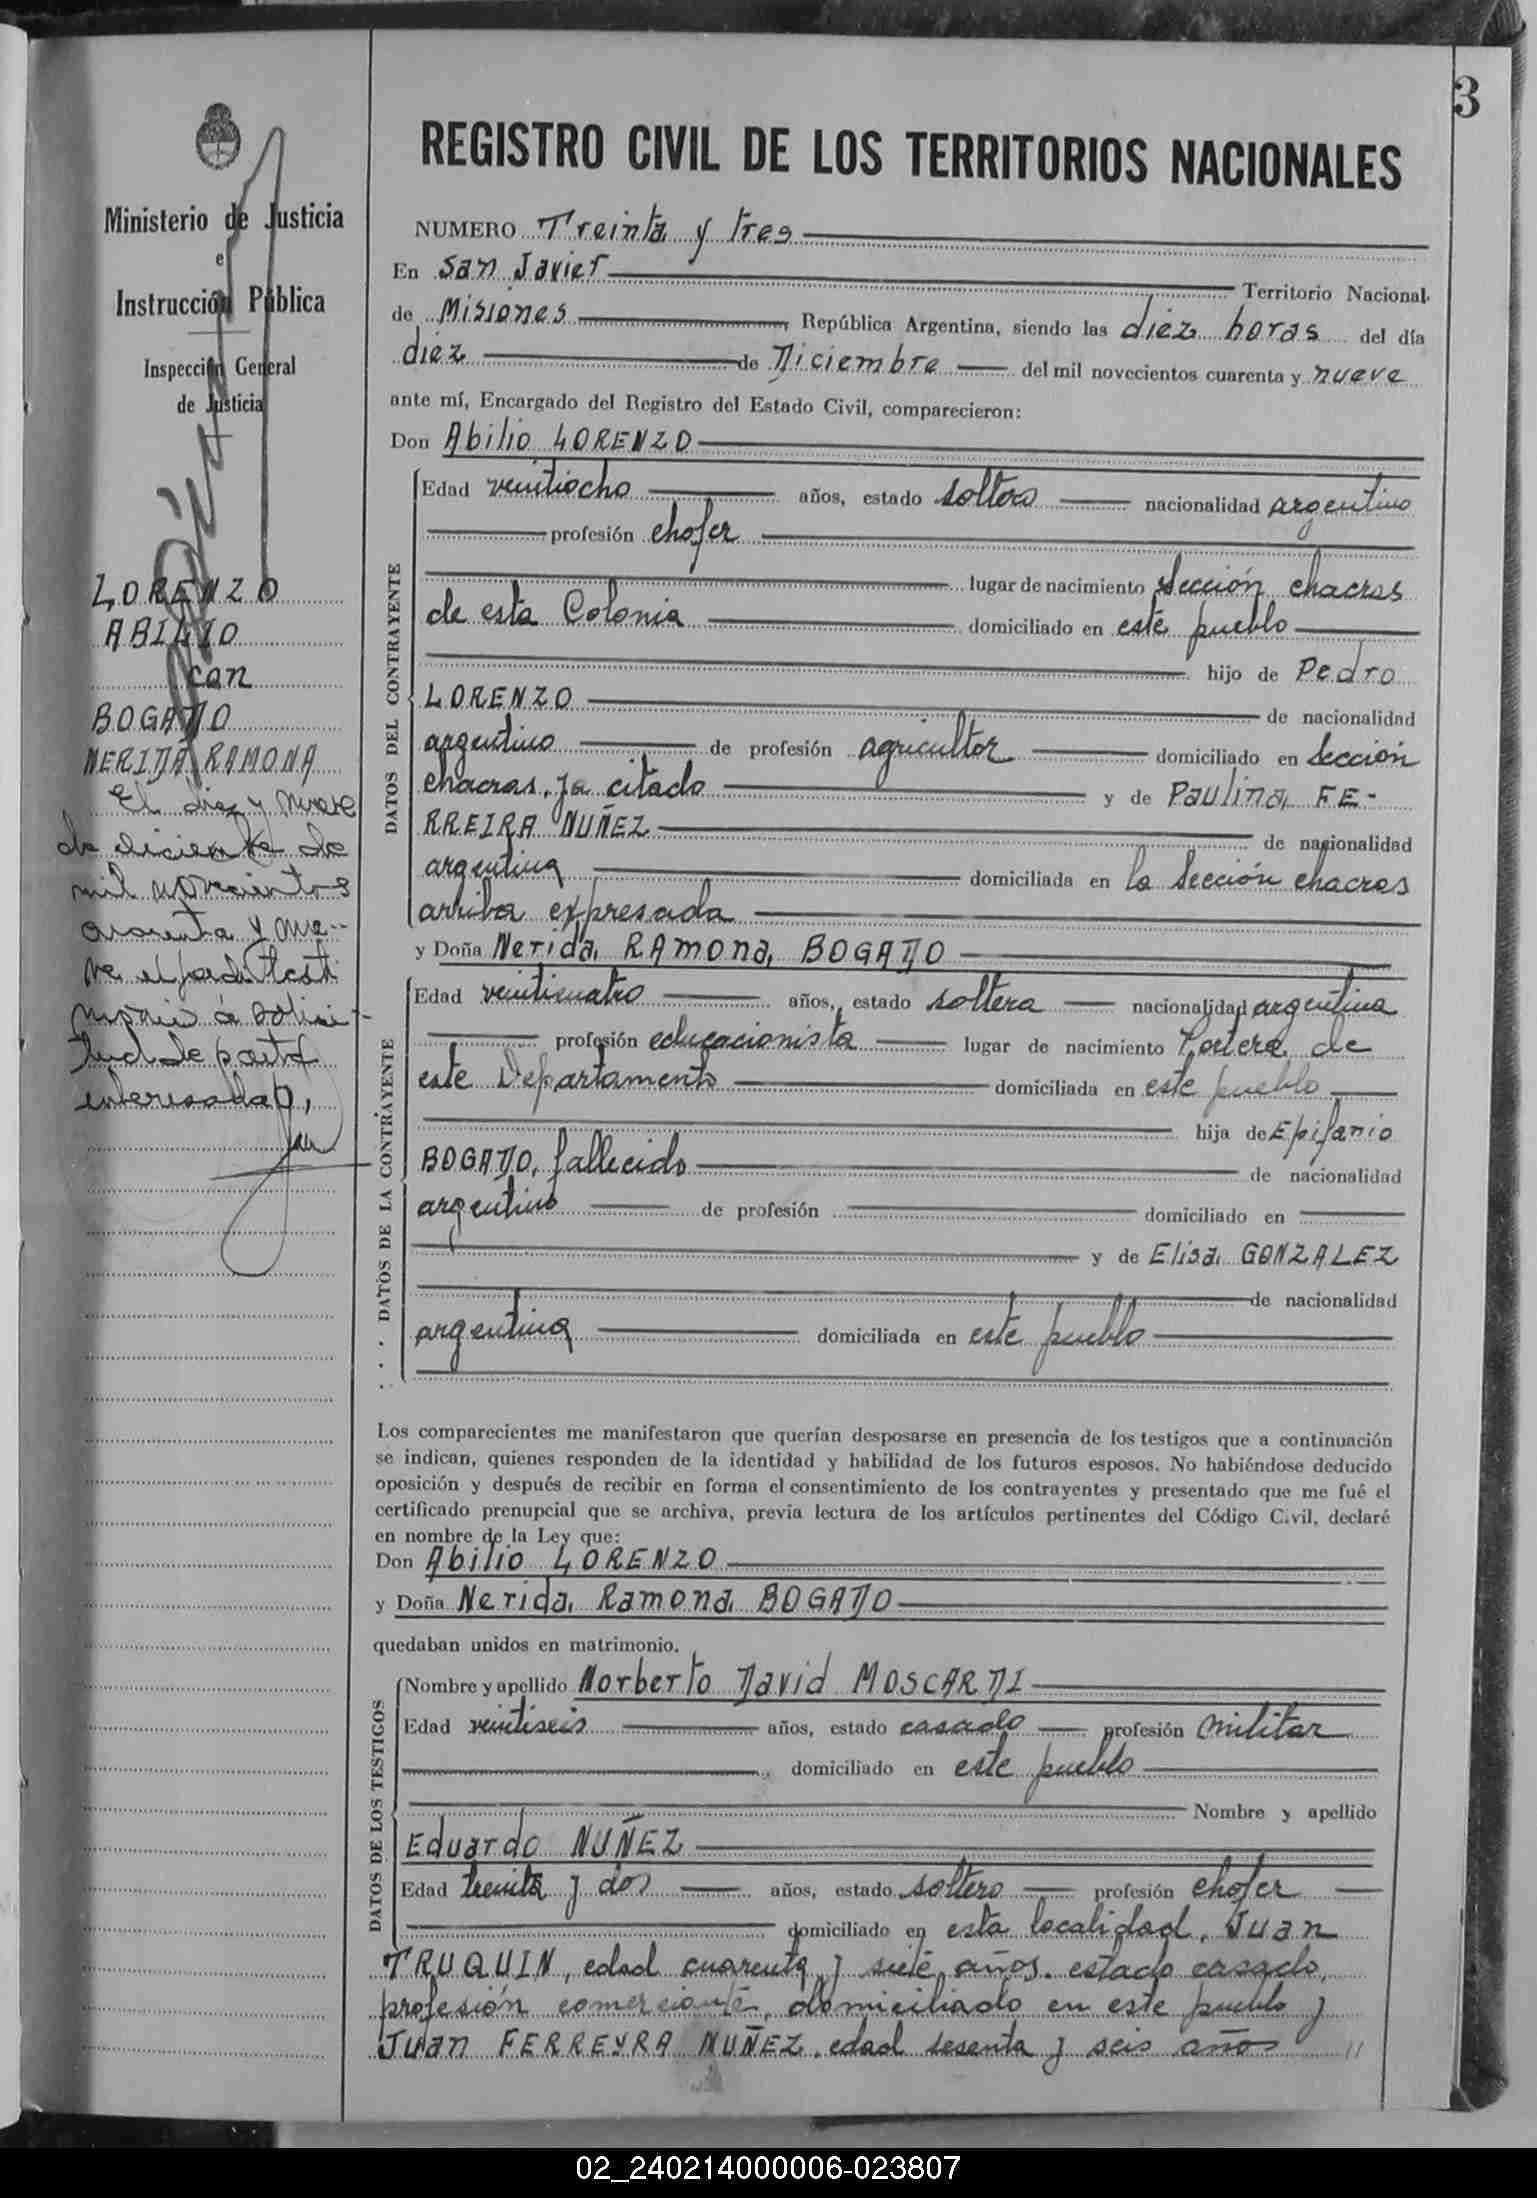 3
REGISTRO CIVIL DE LOS TERRITORIOS NACIONALES
Ministerio de Justicia
e
Instrucción Pública
Inspección General
de Justicia
LORENZO
ABILIO
con
BOGADO
NERIDA RAMONA
El diez y nueve
de diciembre de
mil novecientos
cuarenta y nue--
ve expedí testi
monio á solici-
tud de parte
interesada,
NUMERO Treinta y tres
En San Javier Territorio Nacional
de Misiones República Argentina, siendo las diez horas del día
diez de Diciembre del mil novecientos cuarenta y nueve
ante mí, Encargado del Registro del Estado Civil, comparecieron:
Don Abilio LORENZO
DATOS DEL CONTRAYENTE
Edad veintiocho años, estado soltero nacionalidad argentino
profesión chofer
lugar de nacimiento Sección chacras
de esta Colonia domiciliado en este pueblo
hijo de Pedro
LORENZO de nacionalidad
argentino de profesión agricultor domiciliado en Sección
chacras, ya citado y de Paulina FE-
RREIRA NUÑEZ de nacionalidad
argentina domiciliada en la Sección chacras
arriba expresada
y Doña Nerida Ramona BOGADO
DATOS DE LA CONTRAYENTE
Edad veinticuatro años, estado soltera nacionalidad argentina
profesión educacionista lugar de nacimiento Portera de
este Departamento domiciliada en este pueblo
hija de Epifanio
BOGADO, fallecido de nacionalidad
argentino de profesión domiciliado en
y de Elisa GONZALEZ
de nacionalidad
argentina domiciliada en este pueblo
Los comparecientes me manifestaron que querían desposarse en presencia de los testigos que a continuación
se indican, quienes responden de la identidad y habilidad de los futuros esposos. No habiéndose deducido
oposición y después de recibir en forma el consentimiento de los contrayentes y presentado que me fué el
certificado prenupcial que se archiva, previa lectura de los artículos pertinentes del Código Civil, declaré
en nombre de la Ley que:
Don Abilio LORENZO
y Doña Nerida Ramona BOGADO
quedaban unidos en matrimonio.
DATOS DE LOS TESTIGOS
Nombre y apellido Norberto David MOSCARDI
Edad veintiseis años, estado casado profesión militar
domiciliado en este pueblo
Nombre y apellido
Eduardo NUÑEZ
Edad treinta y dos años, estado soltero profesión chofer
domiciliado en esta localidad, Juan
TRUQUIN, edad cuarenta y siete años, estado casado,
profesión comerciante, domiciliado en este pueblo y
Juan FERREYRA NUÑEZ, edad sesenta y seis años //
02_240214000006-023807